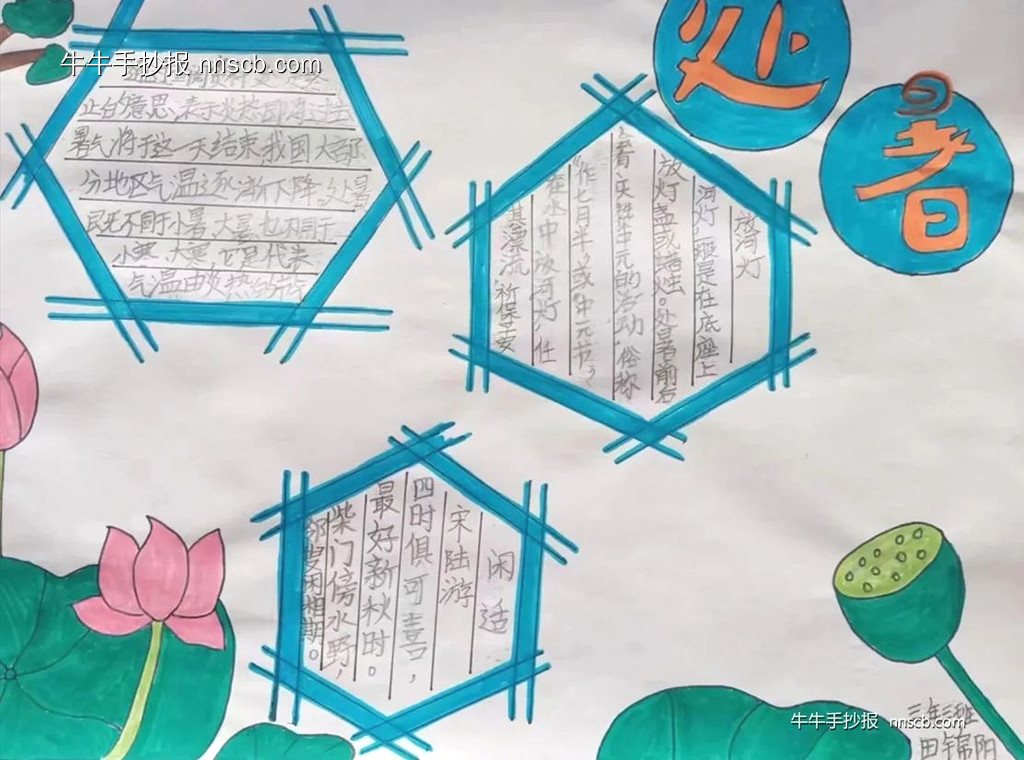 处暑
牛牛手抄报 nnscb.com
止的意思,表示炎热即将过去
暑气将于这一天结束,我国大部
分地区气温逐渐下降。处暑
既不同于小暑、大暑,也不同于
小寒、大寒,它是代表
气温由炎热
放河灯
河灯,一般是在底座上
放灯盏或蜡烛。处暑前后
会有庆祝中元的活动,俗称
“作七月半”或“中元节”,
在水中放河灯,任
其漂流,祈保平安
闲适
宋陆游
四时俱可喜,
最好新秋时。
柴门傍水野,
邻叟闲相期。
牛牛手抄报 nnscb.com
田锦阳